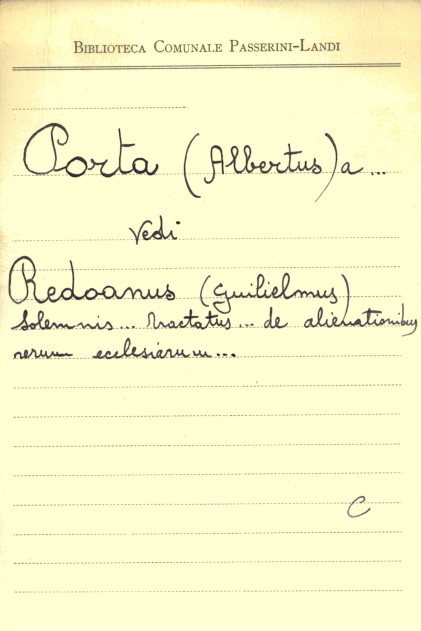 Biblioteca Comunale Passerini-Landi
Porta (Albertus) a ...
Vedi
Redoanus (Guilielmus)
Solemnis ... tractatus ... de alienationibus
rerum ecclesiarum ...
C